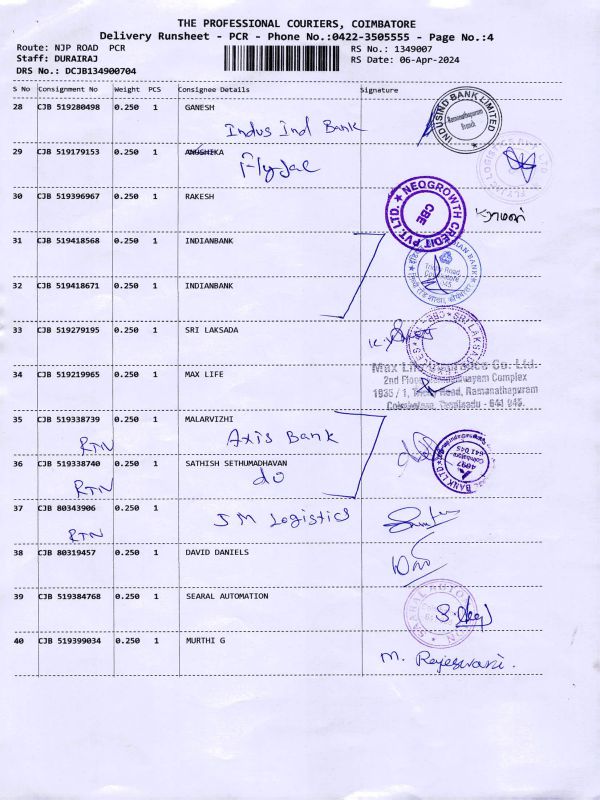 THE PROFESSIONAL COURIERS, COIMBATORE
Delivery Runsheet - PCR - Phone No.:0422-3505555 - Page No.:4
Route: NJP ROAD PCR
RS No.: 1349007
Staff: DURAIRAJ
RS Date: 06-Apr-2024
DRS No.: DCJB134900704
S No Consignment No Weight PCS Consignee Details Signature
28 CJB 519280498 0.250 1 GANESH
Indus Ind Bank
INDUSIND BANK LIMITED
Ramanathapuram
Branch
29 CJB 519179153 0.250 1 ANUSHKA
Flyjac
30 CJB 519396967 0.250 1 RAKESH
NEOGROWTH CREDIT PVT. LTD.
CBE
31 CJB 519418568 0.250 1 INDIANBANK
INDIAN BANK
32 CJB 519418671 0.250 1 INDIANBANK
33 CJB 519279195 0.250 1 SRI LAKSADA
34 CJB 519219965 0.250 1 MAX LIFE
Max Life Insurance Co. Ltd.
2nd Floor, Complex
1935 / 1, Road, Ramanathapuram
Coimbatore, Tamilnadu - 641 045.
35 CJB 519338739 0.250 1 MALARVIZHI
RTN Axis Bank
36 CJB 519338740 0.250 1 SATHISH SETHUMADHAVAN
RTN do
37 CJB 80343906 0.250 1
RTN JM Logistics
38 CJB 80319457 0.250 1 DAVID DANIELS
39 CJB 519384768 0.250 1 SEARAL AUTOMATION
40 CJB 519399034 0.250 1 MURTHI G
M. Rajeswari.